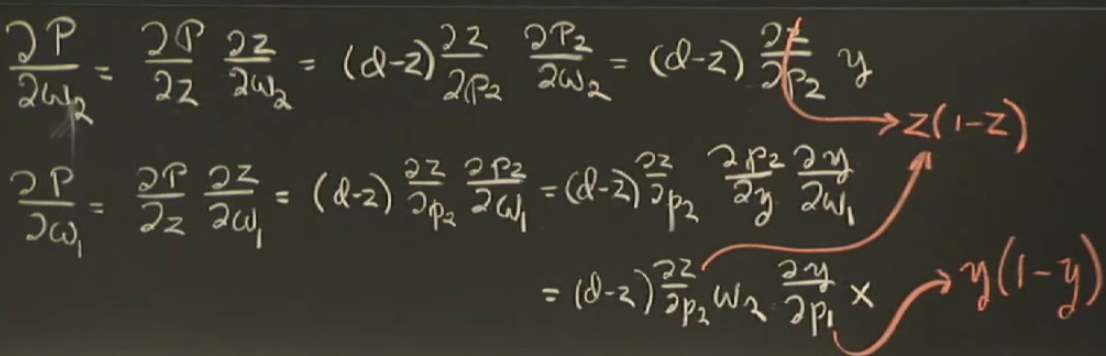 ∂P/∂w₂ = ∂P/∂z ∂z/∂w₂ = (d-z) ∂z/∂p₂ ∂p₂/∂w₂ = (d-z) ∂z/∂p₂ y
→ z(1-z)
∂P/∂w₁ = ∂P/∂z ∂z/∂w₁ = (d-z) ∂z/∂p₂ ∂p₂/∂w₁ = (d-z) ∂z/∂p₂ ∂p₂/∂y ∂y/∂w₁
= (d-z) ∂z/∂p₂ w₂ ∂y/∂p₁ x → y(1-y)